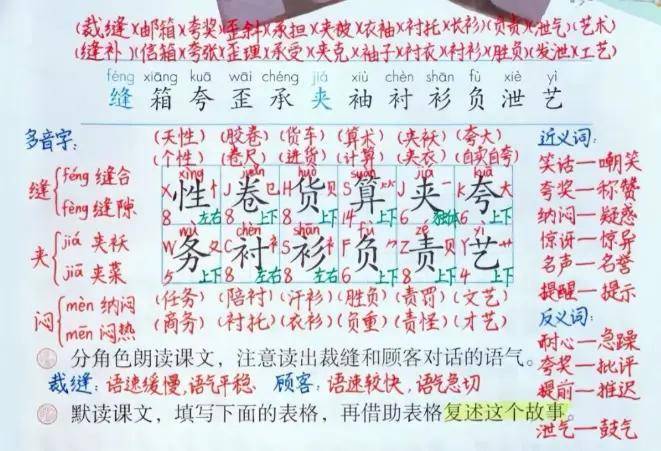 (裁缝)(邮箱)(夸奖)(歪斜)(承担)(夹破)(衣袖)(衬托)(长衫)(负责)(泄气)(艺术)
(缝补)(信箱)(夸张)(歪理)(承受)(夹克)(袖子)(衬衣)(衬衫)(胜负)(发泄)(工艺)
féng xiāng kuā wāi chéng jiá xiù chèn shān fù xiè yì
缝 箱 夸 歪 承 夹 袖 衬 衫 负 泄 艺
多音字:
缝 féng 缝合
fèng 缝隙
夹 jiá 夹袄
jiā 夹菜
闷 mèn 纳闷
mēn 闷热
(天性)(胶卷)(货车)(算术)(夹袄)(夸大)
(个性)(卷尺)(进货)(计算)(夹衣)(自卖自夸)
xìng juǎn huò suàn jiá kuā
性 卷 货 算 夹 夸
8 左右 8 上下 8 上下 14 上下 6 独体 6 上下
wù chèn shān fù zé yì
务 衬 衫 负 责 艺
5 上下 8 左右 8 左右 6 上下 8 上下 4 上下
(任务)(陪衬)(汗衫)(胜负)(责罚)(文艺)
(商务)(衬托)(衣衫)(负重)(责怪)(才艺)
近义词:
笑话—嘲笑
夸奖—称赞
纳闷—疑惑
惊讶—惊异
名声—名誉
提醒—提示
反义词:
耐心—急躁
夸奖—批评
提前—推迟
泄气—鼓气
分角色朗读课文,注意读出裁缝和顾客对话的语气。
裁缝:语速缓慢,语气平稳 顾客:语速较快,语气急切
默读课文,填写下面的表格,再借助表格复述这个故事。